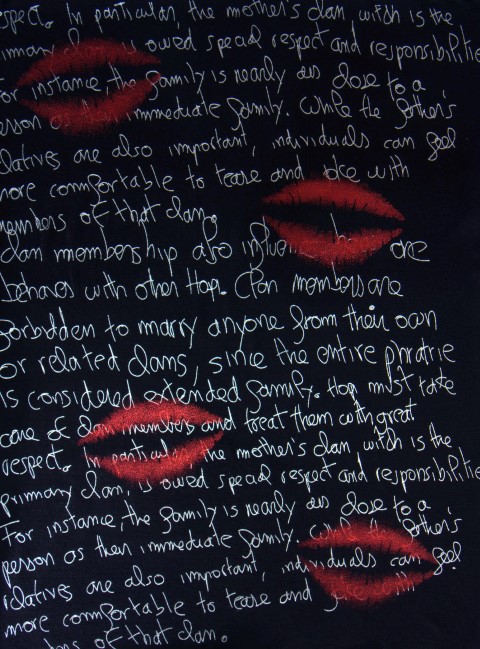 espect. In particular, the mother's clan, witsh is the
rimary clan, is owed specal respect and responsibilitie
For instance, the family is nearly as close to a
erson as their immediate family. While the father's
latives are also important, individuals can feel
more comfortable to tease and joke with
members of that clan.
clan membership also are
behaves with other Hopi. Clan members are
forbidden to marry anyone from their own
or related clans, since the entire phratrie
is considered extended family. Hopi must take
care of clan members and treat them with great
respect. In particular, the mother's clan, witsh is the
primary clan, is owed specal respect and responsibilitie
For instance, the family is nearly as close to a
person as their immediate family. While the father's
relatives are also important, individuals can feel
more comfortable to tease and joke with
of that clan.